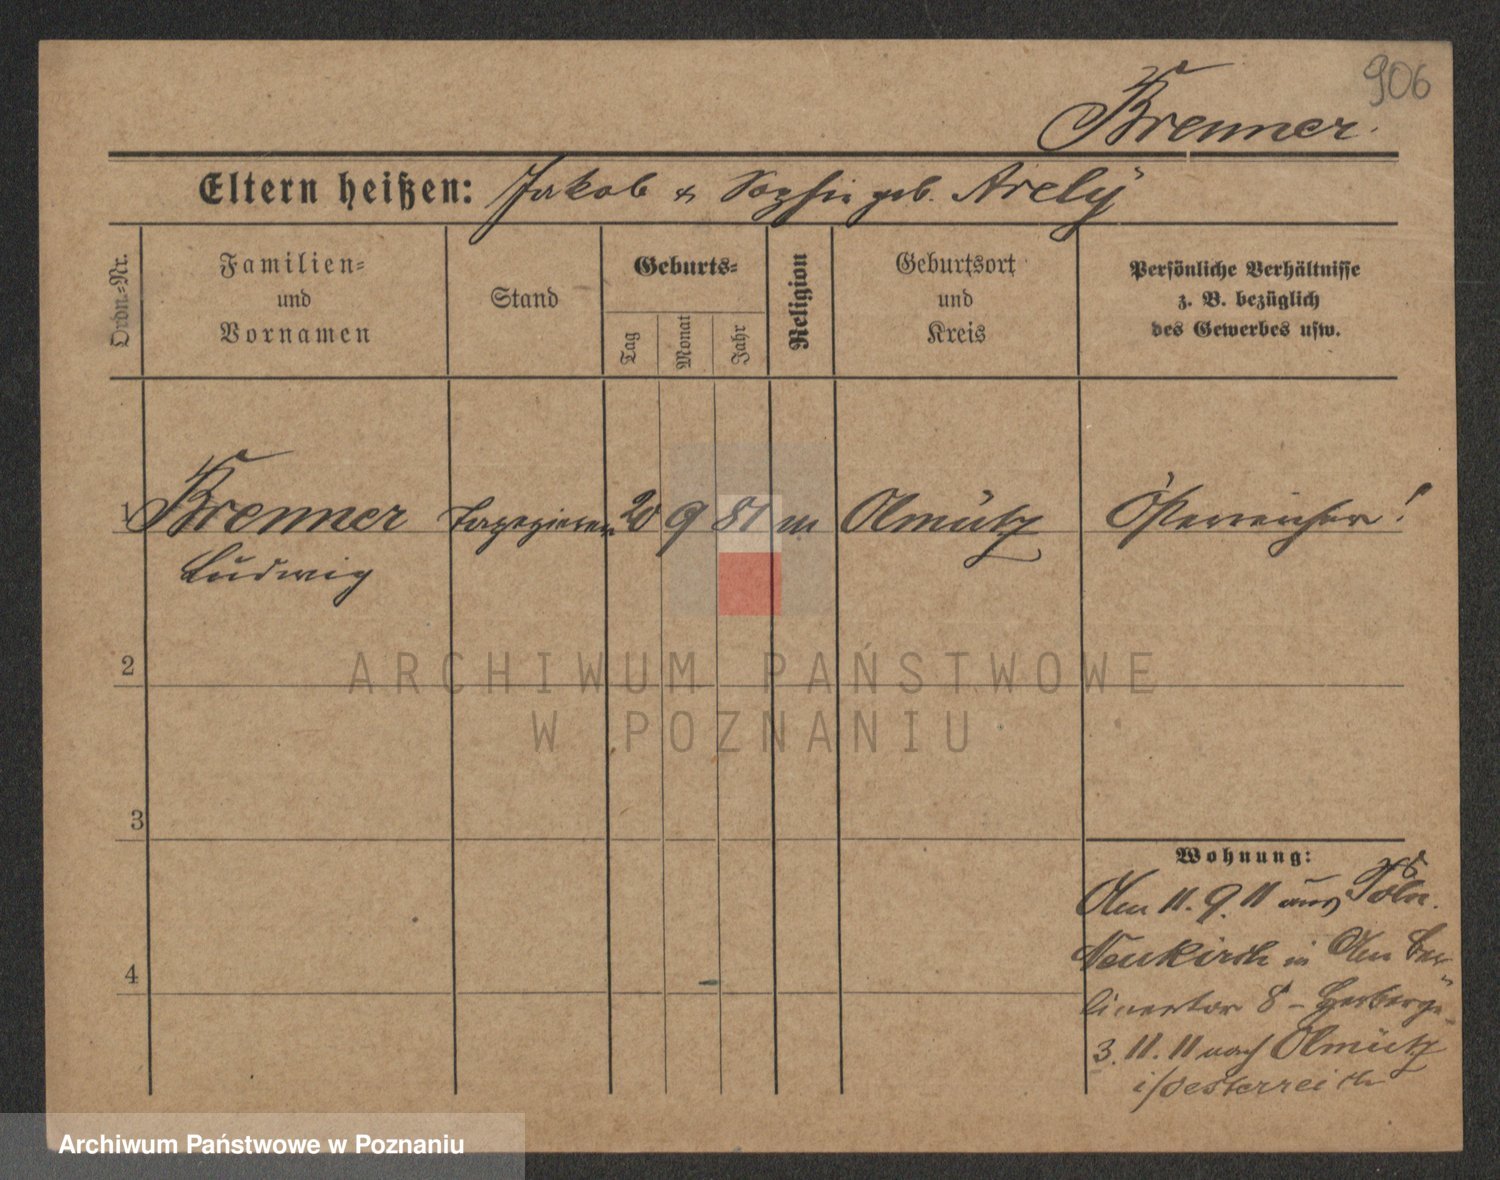 906
Brenner.
Eltern heißen: Jakob & Sophie geb. Arely
Ordn.-Nr.
Familien-
und
Vornamen
Stand
Geburts-
Tag
Monat
Jahr
Religion
Geburtsort
und
Kreis
Persönliche Verhältnisse
z. B. bezüglich
des Gewerbes usw.
1 Brenner Tapezierer 20 9 81 m Olmütz Österreicher!
Ludwig
2
3
4
Wohnung:
Am 11. 9. 11 aus Poln.
Neukirch in Am Ber-
linertor 8 - Herberge
3. 11. 11 nach Olmütz
i/Oesterreich
ARCHIWUM PAŃSTWOWE
W POZNANIU
Archiwum Państwowe w Poznaniu